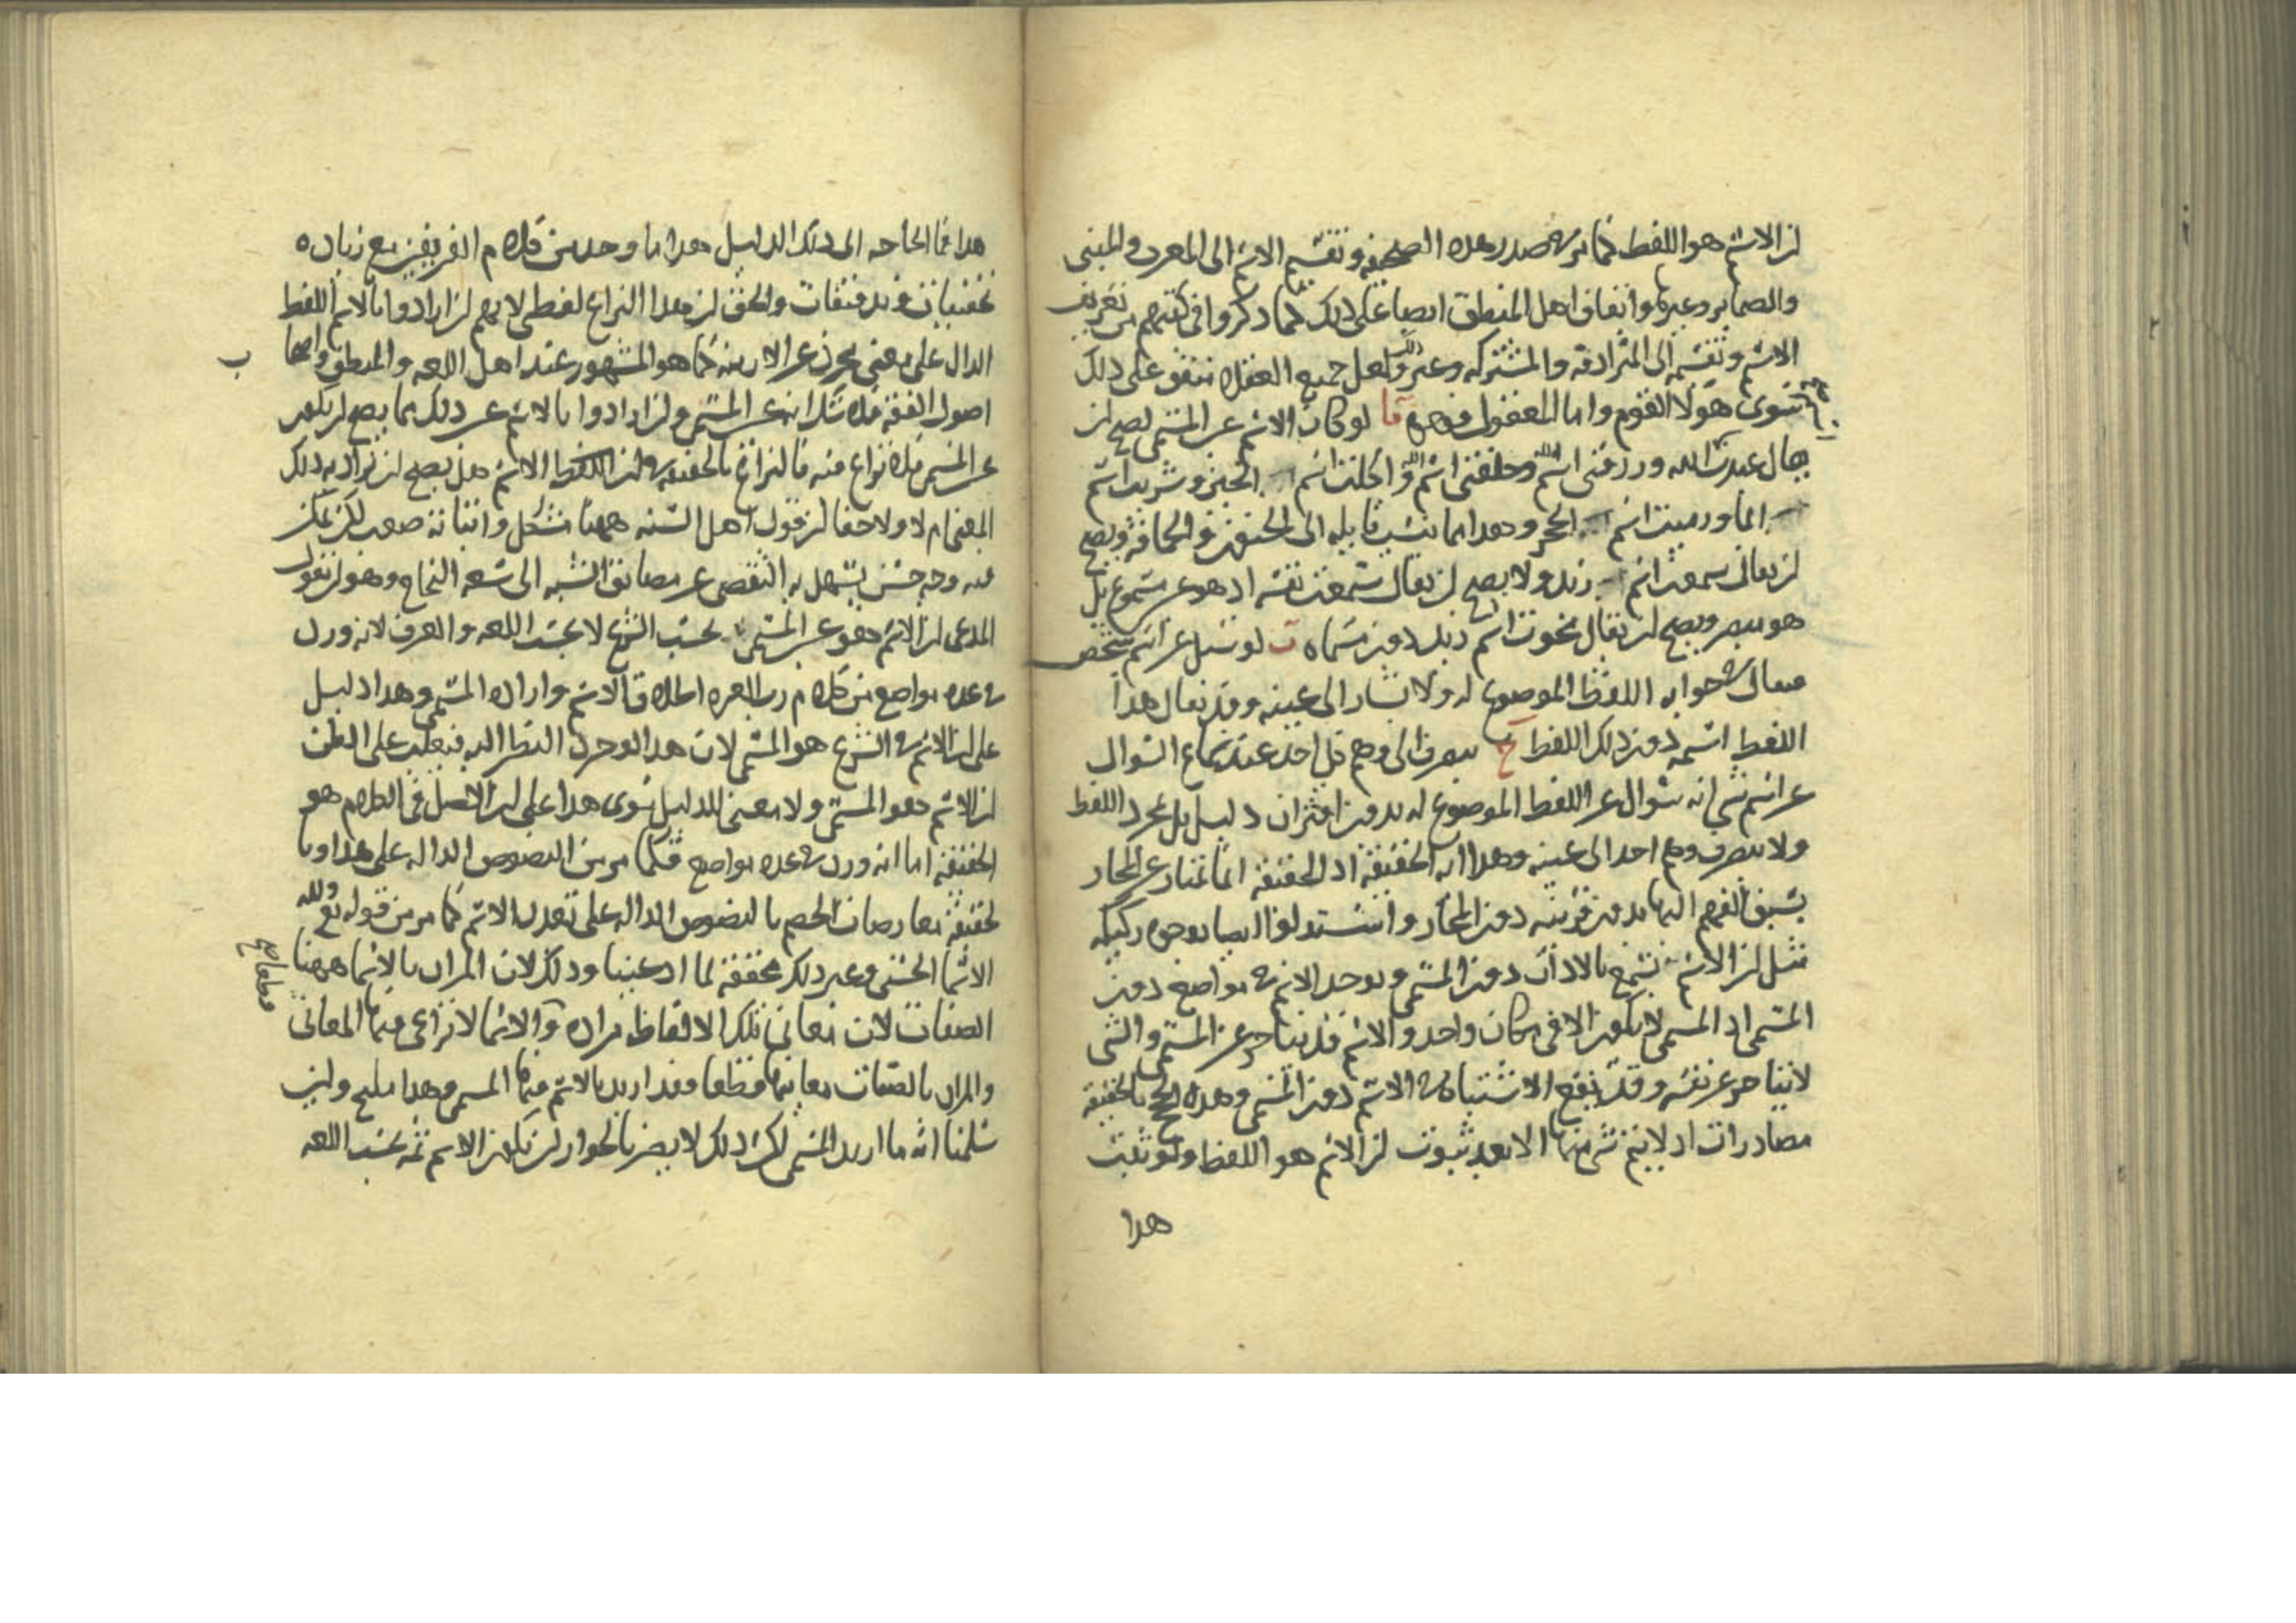 لن الاسم هو اللفظ كما مر في صدر هذه الصحيفة وتقسيم الاسم الى المعرب والمبنى
والضماير وغيرها واتفاق اهل المنطق ايضا على ذلك كما ذكروا في كتبهم من تعريف
الاسم وتقسيمه الى المترادفة والمشتركه وغير ذلك ولعل جميع العقلاء متفق على ذلك
سوى هولا القوم واما المعقول فوجوه آ لو كان الاسم عين المسمى لصح لن
يقال عبدت اسم الله ورزقنى اسم الله وخلقنى اسم الله واكلت اسم الخبز وشربت اسم
الما ورميت اسم الحجر وهذا مما ينسب قايله الى الجنون والحماقة ويصح
لن يقال سمعت اسم زيد ولا يصح لن يقال سمعت نفسه اذ هو غير مسموع بل
هو مبصر ويصح لن يقال محوت اسم زيد دون مسماه ب لو سئل عن اسم شخص
فيقال في جوابه اللفظ الموضوع له ولا يشار الى عينه وقد يقال هذا
اللفظ اسمه دون ذلك اللفظ ج ينصرف الى وهم كل احد عند سماع السوال
عن اسم شى انه سوال عن اللفظ الموضوع له بدون اقتران دليل بل بمجرد اللفظ
ولا ينصرف وهم احد الى عينه وهذا اية الحقيقة اذ الحقيقة انما تمتاز عن المجاز
بسبق الفهم اليها بدون قرينه دون المجاز واستدلوا ايضا بوجوه ركيكه
مثل لن الاسم يسمع بالاذان دون المسمى ويوجد الاسم في مواضع دون
المسمى اذ المسمى لا يكون الا في مكان واحد والاسم قد يتاخر عن المسمى والشى
لا يتاخر عن نفسه وقد يقع الاشتباه في الاسم دون المسمى وهذه الحجج بالحقيقه
مصادرات اذ لا يتم شى منها الا بعد ثبوت لن الاسم هو اللفظ ولو ثبت
هذا
هذا فما الحاجه الى ذلك الدليل هذا ما وجد من كلام الفريقين مع زياده
تحقيقات وتدقيقات والحق لن هذا النزاع لفظى لانهم لن ارادوا بالاسم اللفظ
الدال على معنى مجرد عن الازمنه كما هو المشهور عند اهل اللغه والمنطق واصحاب
اصول الفقه فلا شك انه غير المسمى ولن ارادوا بالاسم غير ذلك مما يصح لن يكون
عين المسمى فلا نزاع فيه فالنزاع بالحقيقه في لن اللفظ الاسم هل يصح لن يراد به ذلك
المعنى ام لا ولا خفا لن قول اهل السنه ههنا مشكل واثباته صعب لكن يمكن
فيه وجه حسن يسهل به التقصى عن مضايق الشبه الى سعه النجاح وهو لن نقول
المدعى لن الاسم هو عين المسمى بحسب الشرع لا بحسب اللغه والعرف لانه ورد
في عده مواضع من كلام رب العزه اطلاق الاسم واراده المسمى وهذا دليل
على لن الاسم في الشرع هو المسمى لان هذا الوجه اذا نظر اليه فيغلب على الظن
لن الاسم هو المسمى ولا معنى للدليل سوى هذا على لن الاصل في الكلام هو
الحقيقه اما انه ورد في عده مواضع فكما مر من النصوص الداله على هذا وما
لحقيقته معارضات الخصم بالنصوص الداله على تعدد الاسم كما مر من قوله تع ولله
الاسما الحسنى وغير ذلك محققه لما ادعينا وذلك لان المراد بالاسما ههنا
الصفات لان معانى تلك الالفاظ مراده والاسما لا نزاع فيها المعانى
والمراد بالصفات معانيها قطعا فقد اريد بالاسم فيها المسمى وهذا مليح ولين
سلمنا انه ما اريد المسمى لكن ذلك لا يضر بالجواز لن يكون الاسم ثمه بحسب اللغه